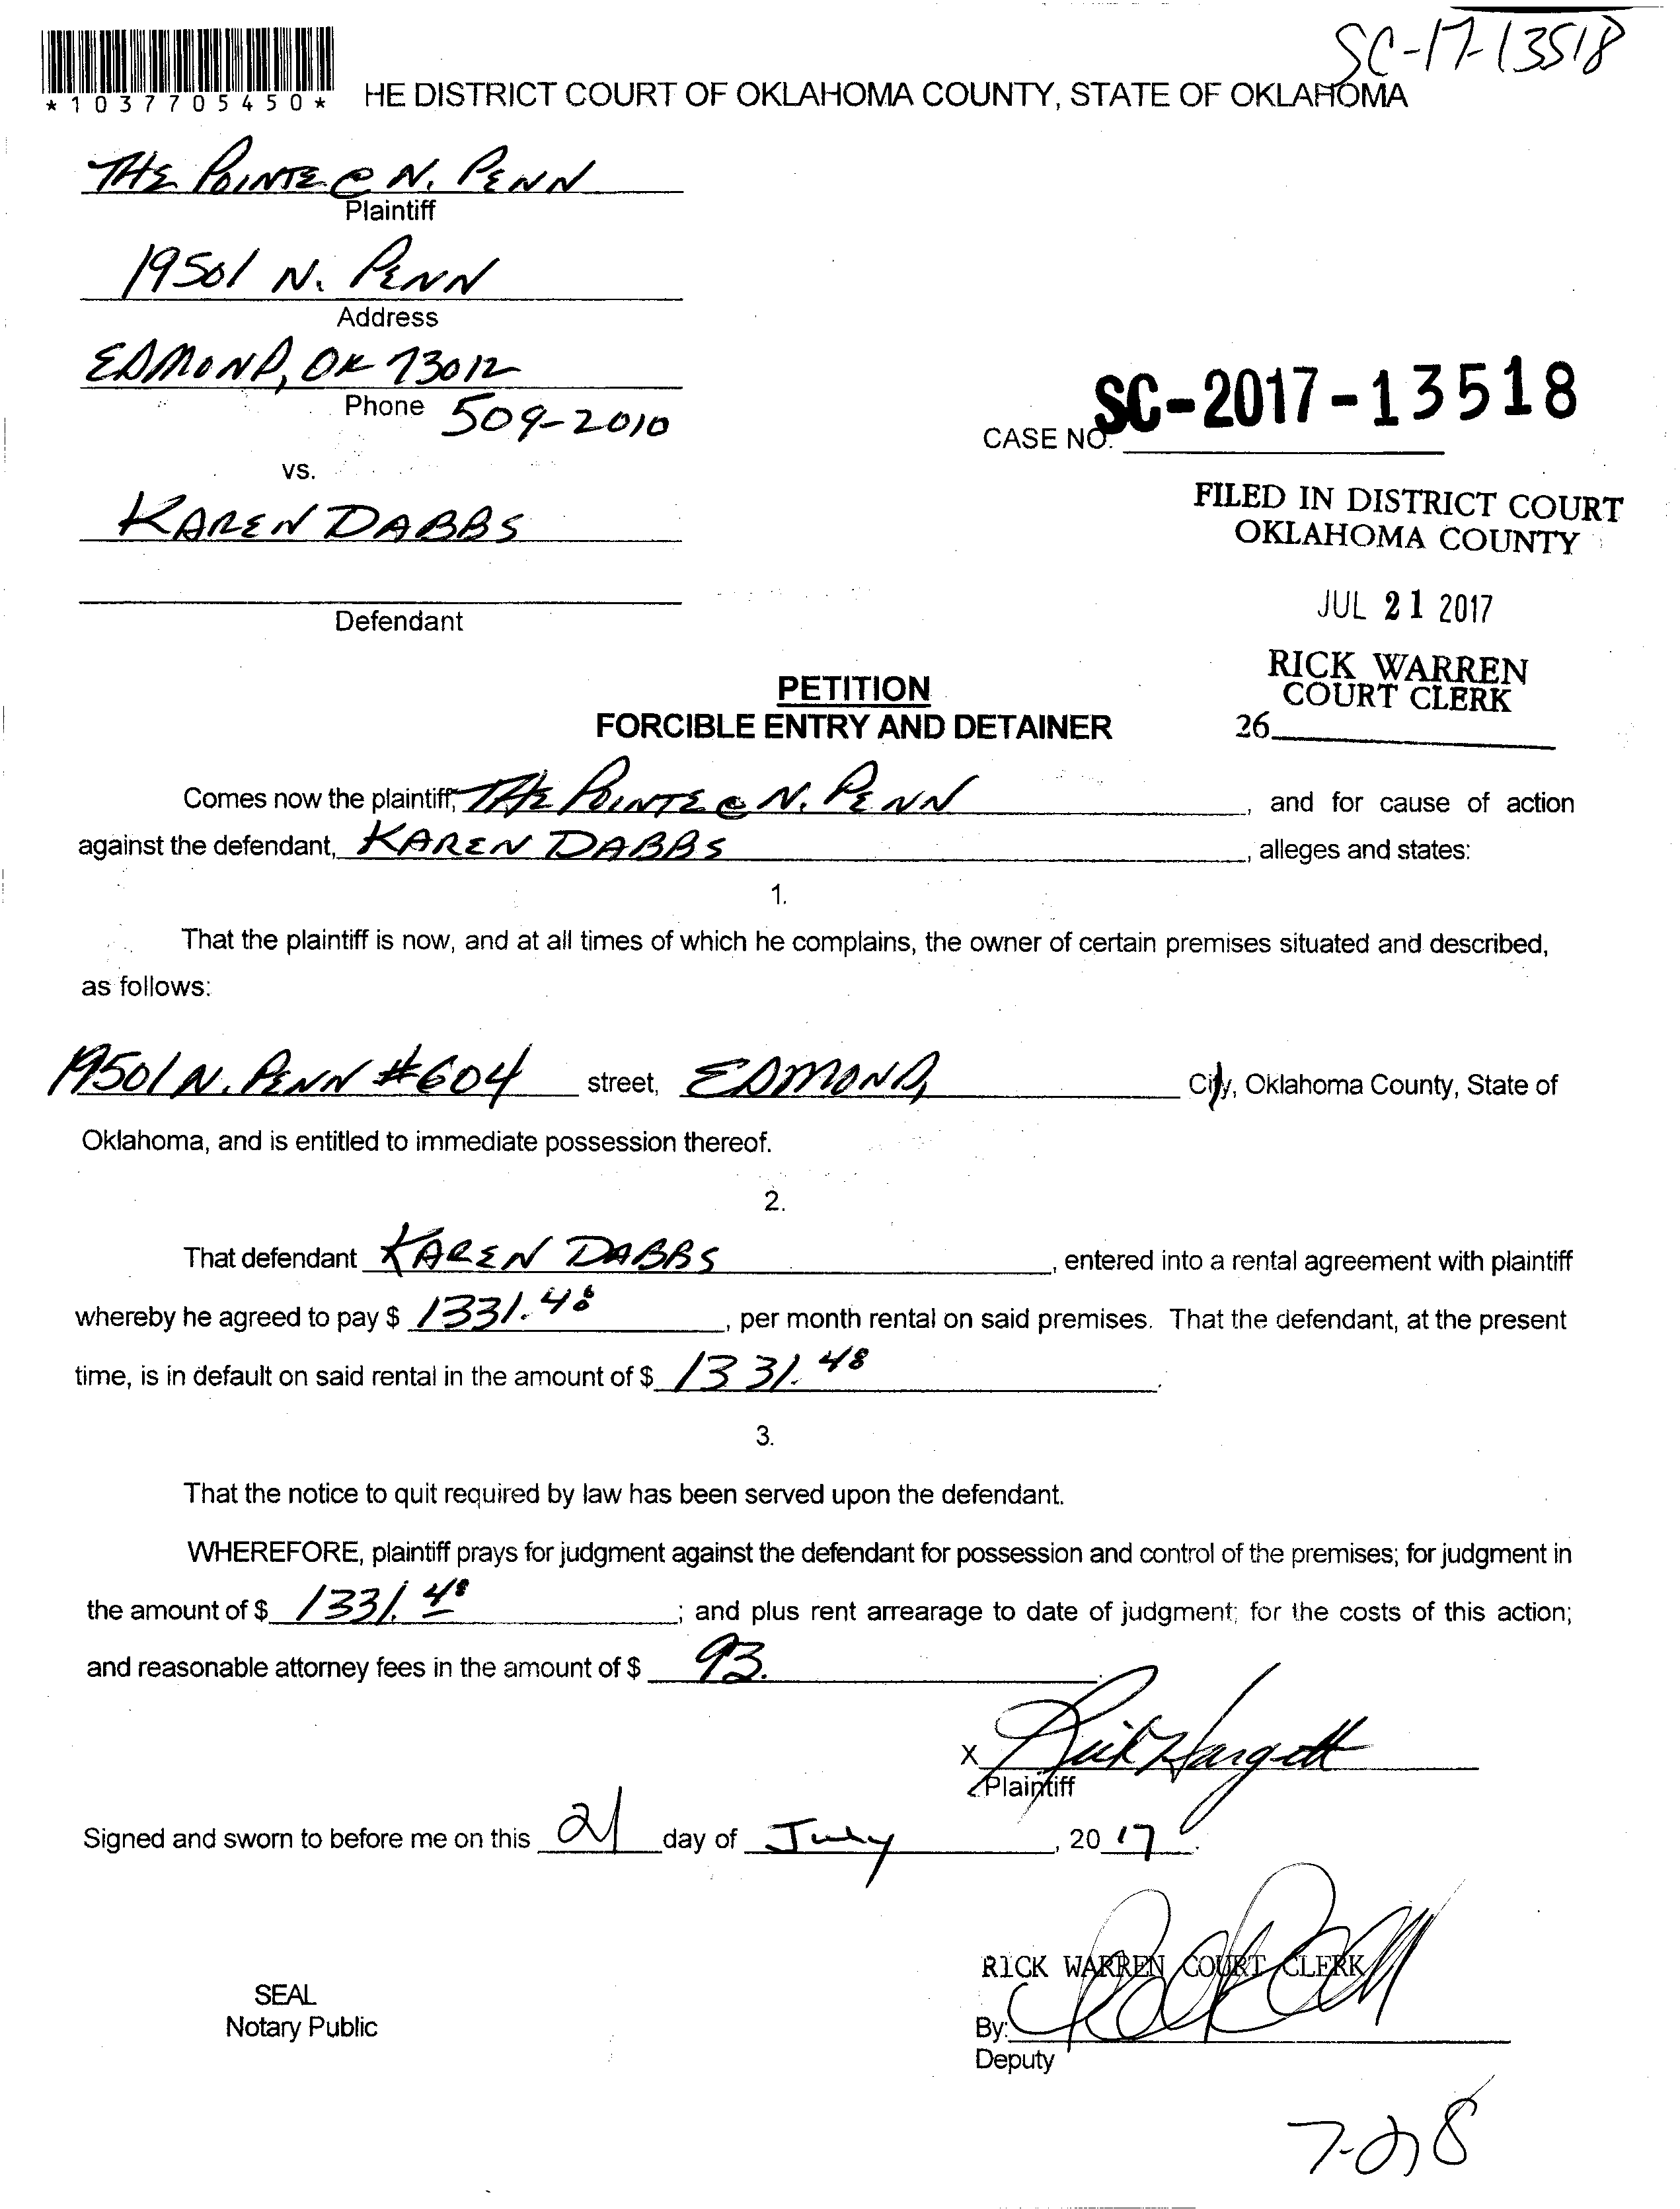 SC-17-13518
*1037705450*
HE DISTRICT COURT OF OKLAHOMA COUNTY, STATE OF OKLAHOMA
THE POINTE @ N. PENN
Plaintiff
19501 N. PENN
Address
EDMOND, OK 73012
Phone 509-2010
CASE NO. SC-2017-13518
vs.
KAREN DABBS
FILED IN DISTRICT COURT
OKLAHOMA COUNTY
Defendant
JUL 21 2017
RICK WARREN
COURT CLERK
26
PETITION
FORCIBLE ENTRY AND DETAINER
Comes now the plaintiff, THE POINTE @ N. PENN, and for cause of action
against the defendant, KAREN DABBS, alleges and states:
1.
That the plaintiff is now, and at all times of which he complains, the owner of certain premises situated and described,
as follows:
19501 N. PENN #604 street, EDMOND, City, Oklahoma County, State of
Oklahoma, and is entitled to immediate possession thereof.
2.
That defendant KAREN DABBS, entered into a rental agreement with plaintiff
whereby he agreed to pay $ 1331.48, per month rental on said premises. That the defendant, at the present
time, is in default on said rental in the amount of $ 1331.48.
3.
That the notice to quit required by law has been served upon the defendant.
WHEREFORE, plaintiff prays for judgment against the defendant for possession and control of the premises; for judgment in
the amount of $ 1331.48; and plus rent arrearage to date of judgment; for the costs of this action;
and reasonable attorney fees in the amount of $ 93.
X Rick Hargett
Plaintiff
Signed and sworn to before me on this 21 day of July, 2017.
RICK WARREN COURT CLERK
SEAL
Notary Public
By:
Deputy